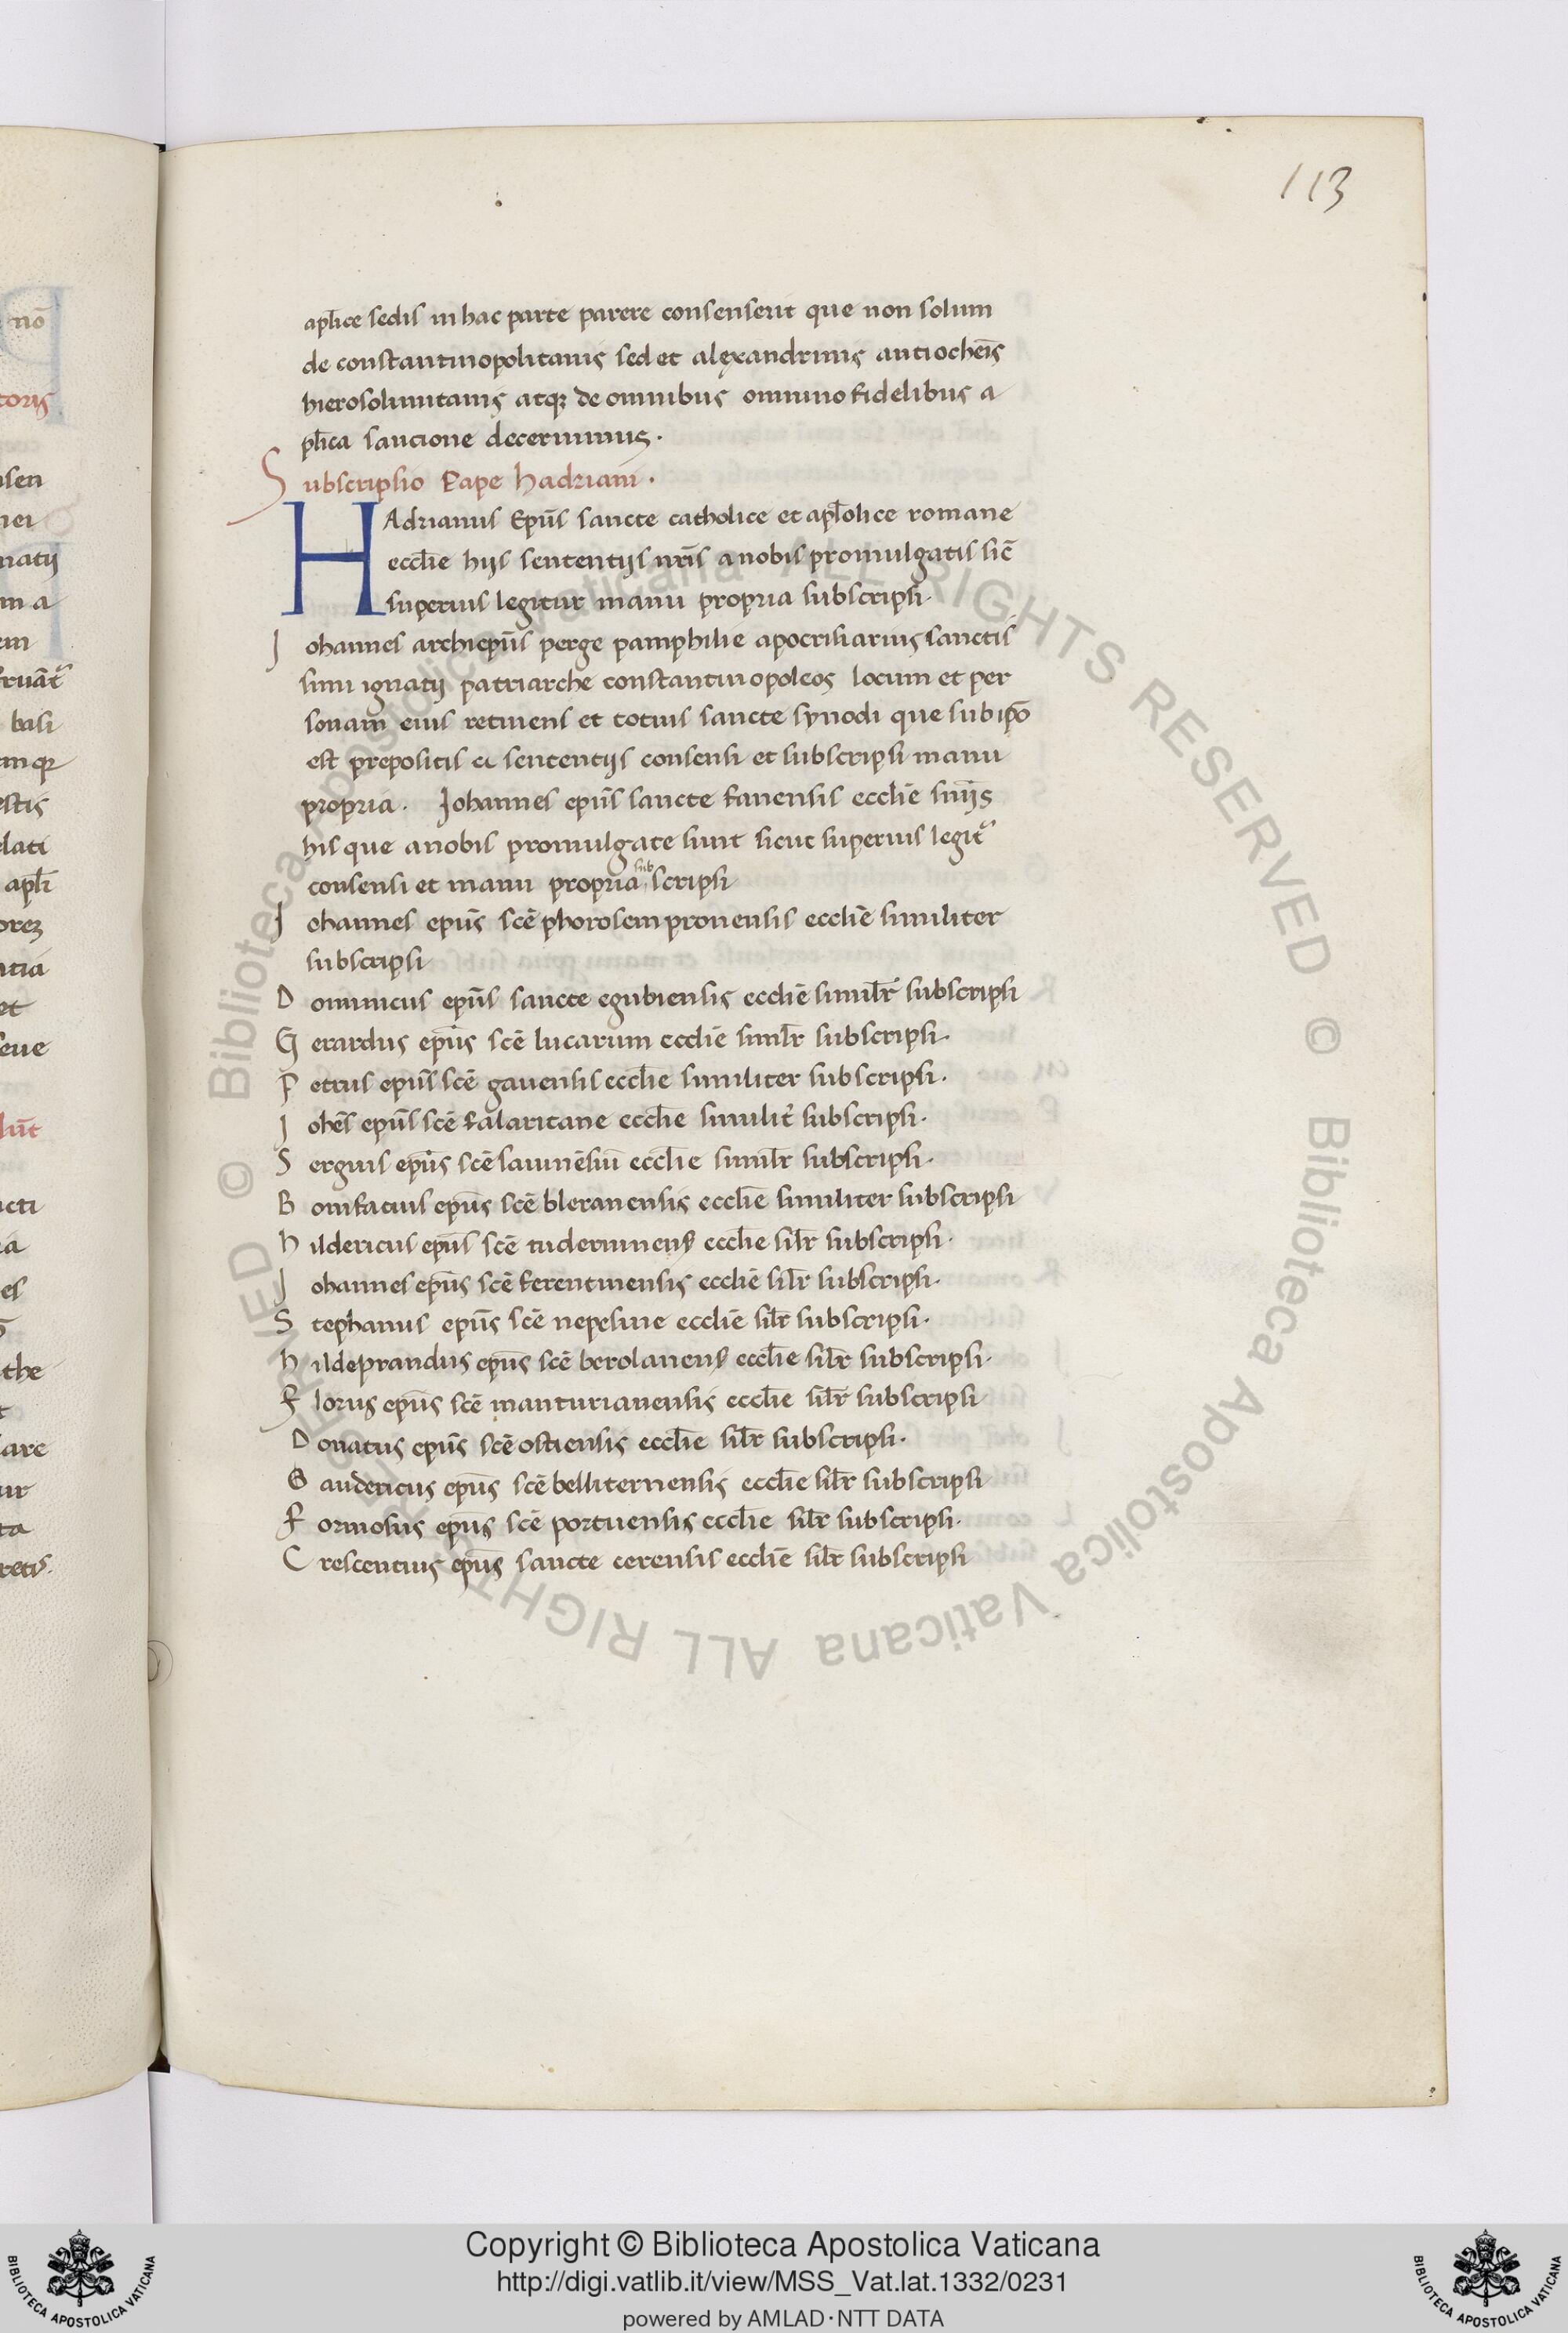 113
nō
toris
natii
m a
basi
estis
lati
apl̄i
et
cti
a
es
the
are
ur
ta
apl̄ice sedis in hac parte parere consenserit que non solum
de constantinopolitanis sed et alexandrinis antiochēis
hierosolimitanis atq; de omnibus omnino fidelibus a
pl̄ica sancione decernimus.
Subscripsio Pape Hadriani.
HAdrianus Epūs sancte catholice et apl̄olice romane
eccl̄ie hijs sententijs nrīs a nobis promulgatis sic̄
superius legitur manu propria subscripsi.
Johannes archiepūs perge pamphilie apocrisiarius sanctis
simi ignatij patriarche constantinopoleos locum et per
sonam eius retinens et totius sancte synodi que sub ip̄o
est prepositis ei sententijs consensi et subscripsi manu
propria. Johannes epūs sancte fanensis eccliē
his que a nobis promulgate sunt sicut superius legit᷑
consensi et manu propria subscripsi
Johannes epūs scē phorosempronensis eccliē similiter
subscripsi
Dominicus epūs sancte egubiensis eccliē simil̄r subscripsi
Gerardus epūs scē lucarum eccliē simil̄r subscripsi.
Petrus epūs scē gavensis eccl̄ie similiter subscripsi.
Johēs epūs scē falaritane eccl̄ie similit᷑ subscripsi.
Sergius epūs scē eccl̄ie simil̄r subscripsi.
Bonifacius epūs scē bleranensis eccliē similiter subscripsi
Hildericus epūs scē tudertinens̨ eccl̄ie sil̄r subscripsi.
Johannes epūs scē ferentinensis eccliē sil̄r subscripsi.
Stephanus epūs scē nepesine eccliē sil̄r subscripsi.
Hildeprandus epūs scē berolanens̨ eccl̄ie sil̄r subscripsi.
Florus epūs scē manturianensis eccl̄ie sil̄r subscripsi
Donatus epūs scē ostiensis eccl̄ie sil̄r subscripsi.
Gaudericus epūs scē belliternensis eccl̄ie sil̄r subscripsi
Formosus epūs scē portuensis eccl̄ie sil̄r subscripsi.
Crescentius epūs sancte cerensis eccliē sil̄r subscripsi
© Biblioteca Apostolica Vaticana ALL RIGHTS RESERVED © Biblioteca Apostolica Vaticana ALL RIGHTS RESERVED
Copyright © Biblioteca Apostolica Vaticana
http://digi.vatlib.it/view/MSS_Vat.lat.1332/0231
powered by AMLAD·NTT DATA
BIBLIOTECA APOSTOLICA VATICANA
BIBLIOTECA APOSTOLICA VATICANA